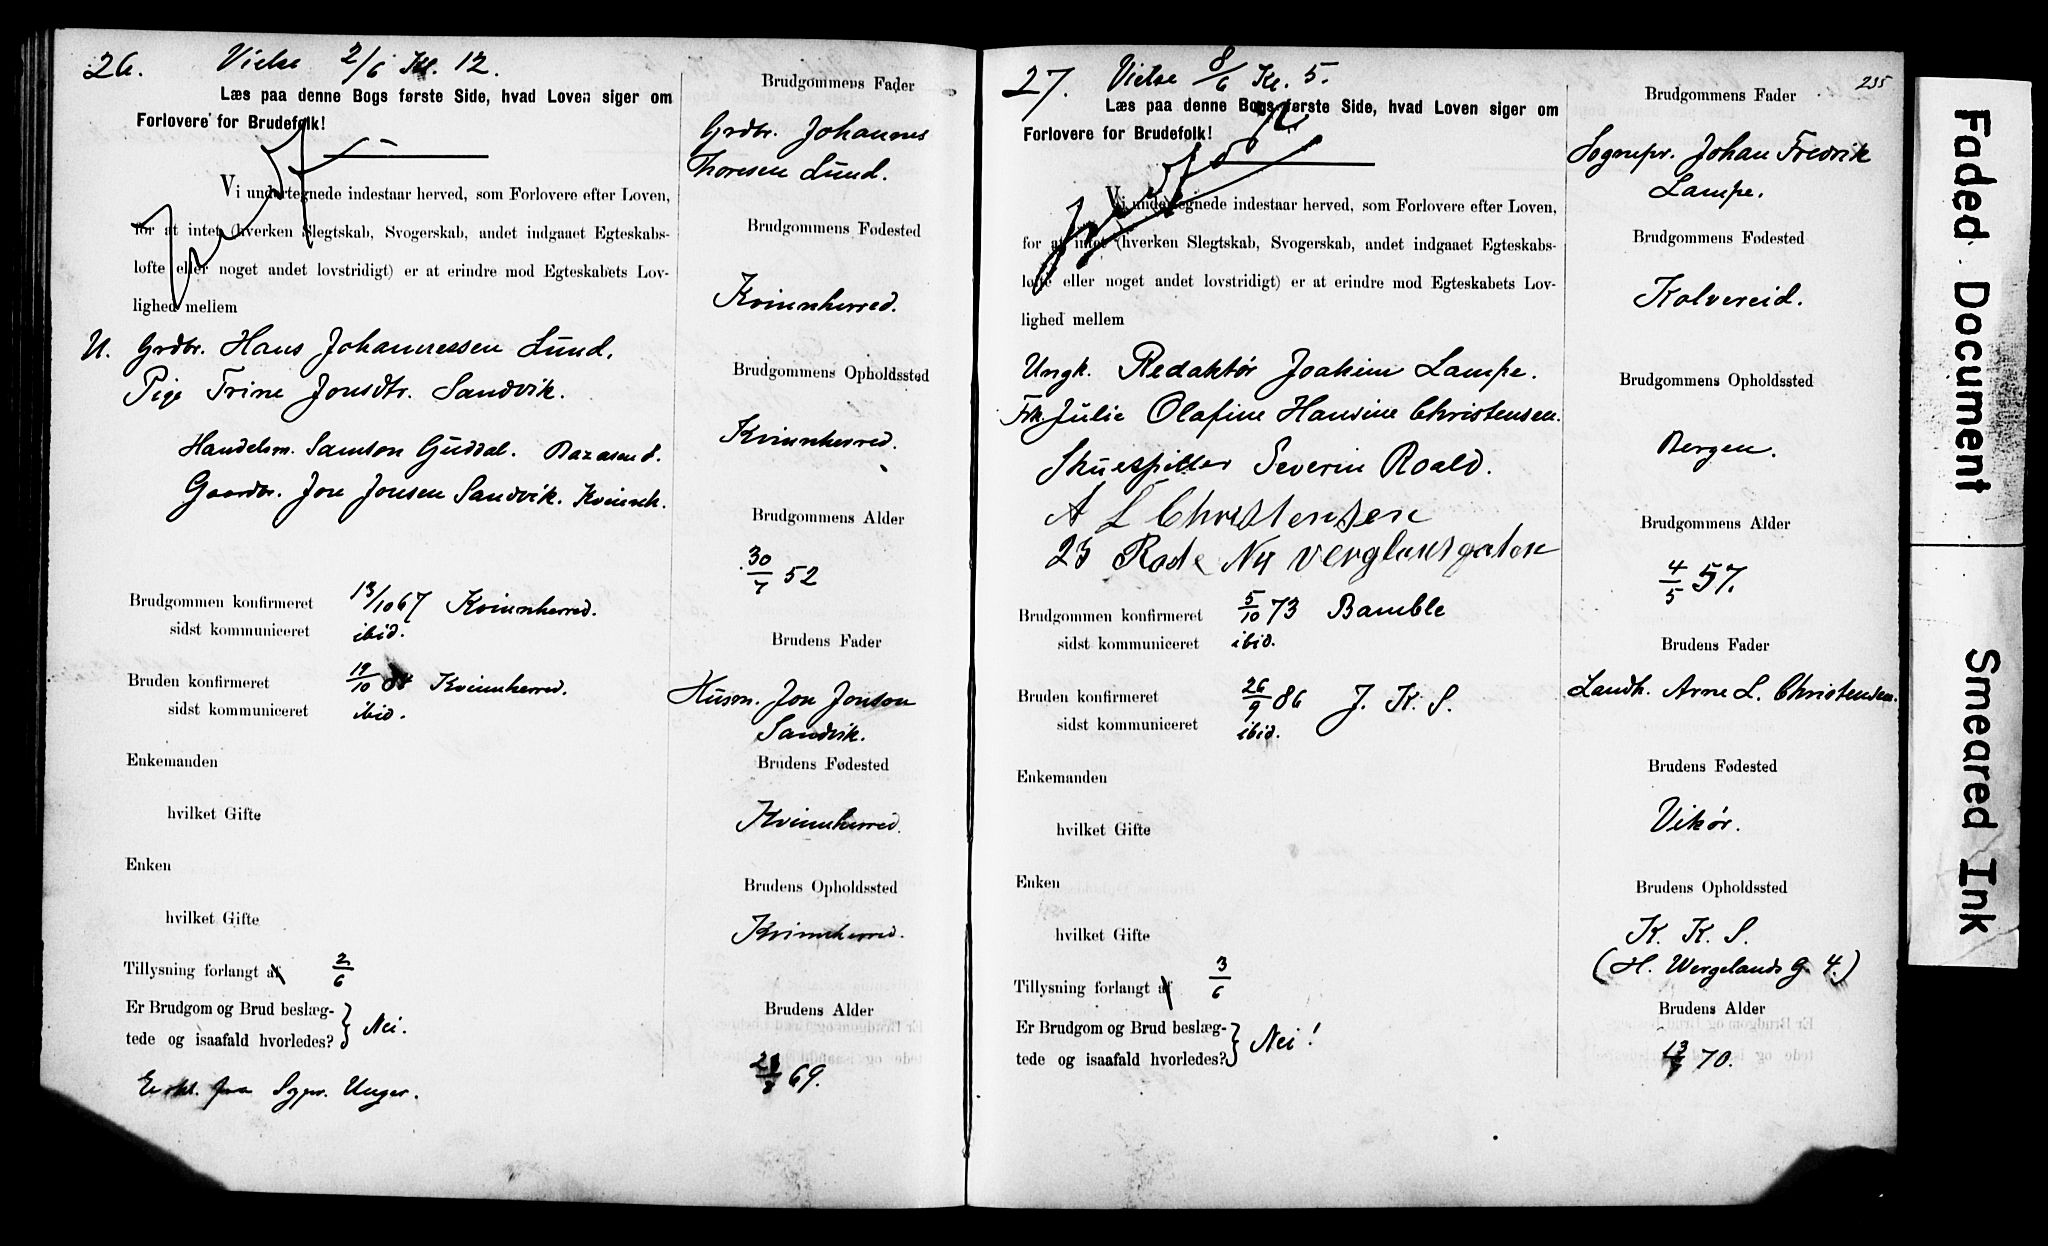 26. Vielse 2/6 Kl. 12.
Læs paa denne Bogs første Side, hvad Loven siger om
Forlovere for Brudefolk!
Vi undertegnede indestaar herved, som Forlovere efter Loven,
for at intet (hverken Slegtskab, Svogerskab, andet indgaaet Egteskabs-
løfte eller noget andet lovstridigt) er at erindre mod Egteskabets Lov-
lighed mellem
U. Grdbr. Hans Johannessen Lund.
Pige Trine Jonsdtr. Sandvik.
Handelsm. Samson Guddal.
Gaardbr. Jon Jonsen Sandvik. Kvinnh.
Brudgommen konfirmeret 13/10 67 Kvinnherred.
sidst kommuniceret ibid.
Bruden konfirmeret 19/10 Kvinnherred.
sidst kommuniceret ibid.
Enkemanden
hvilket Gifte
Enken
hvilket Gifte
Tillysning forlangt af 2/6
Er Brudgom og Brud beslæg-
tede og isaafald hvorledes? } Nei.
fra Sgpr. Unger.
Brudgommens Fader
Grdbr. Johannes
Thoresen Lund.
Brudgommens Fødested
Kvinnherred.
Brudgommens Opholdssted
Kvinnherred.
Brudgommens Alder
30/7 52
Brudens Fader
Husm. Jon Jonson
Sandvik.
Brudens Fødested
Kvinnherred.
Brudens Opholdssted
Kvinnherred.
Brudens Alder
69.
235
27. Vielse 8/6 Kl. 5.
Læs paa denne Bogs første Side, hvad Loven siger om
Forlovere for Brudefolk!
Vi undertegnede indestaar herved, som Forlovere efter Loven,
for at intet (hverken Slegtskab, Svogerskab, andet indgaaet Egteskabs-
løfte eller noget andet lovstridigt) er at erindre mod Egteskabets Lov-
lighed mellem
Ungk. Redaktør Joakim Lampe.
Frk. Julie Olafine Hansine Christensen.
Skuespiller Severin Roald.
A L Christensen
23 Rode Ny
Brudgommen konfirmeret 5/10 73 Bamble
sidst kommuniceret ibid.
Bruden konfirmeret 26/9 86 J. K. S.
sidst kommuniceret ibid.
Enkemanden
hvilket Gifte
Enken
hvilket Gifte
Tillysning forlangt af 3/6
Er Brudgom og Brud beslæg-
tede og isaafald hvorledes? } Nei!
Brudgommens Fader
Sognepr. Johan Fredrik
Lampe.
Brudgommens Fødested
Kolvereid.
Brudgommens Opholdssted
Bergen.
Brudgommens Alder
4/5 57.
Brudens Fader
Landh. Arne L. Christensen.
Brudens Fødested
Vikør.
Brudens Opholdssted
K. K. S.
(H. Wergelands G. 4.)
Brudens Alder
70.
Faded Document
Smeared Ink